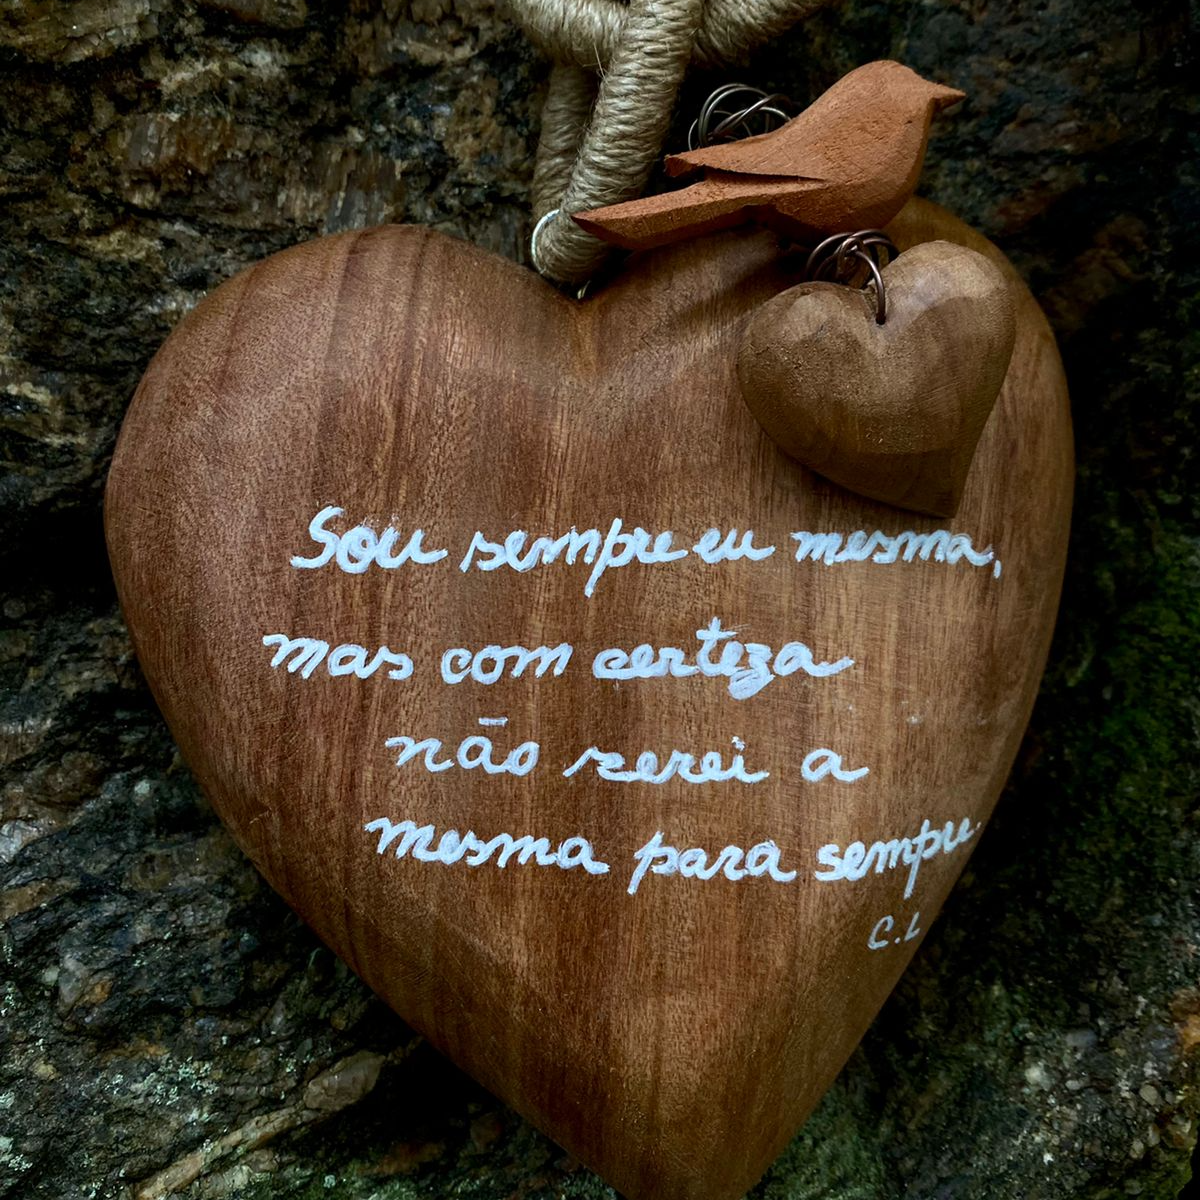 Sou sempre eu mesma,
mas com certeza
não serei a
mesma para sempre.
C.L